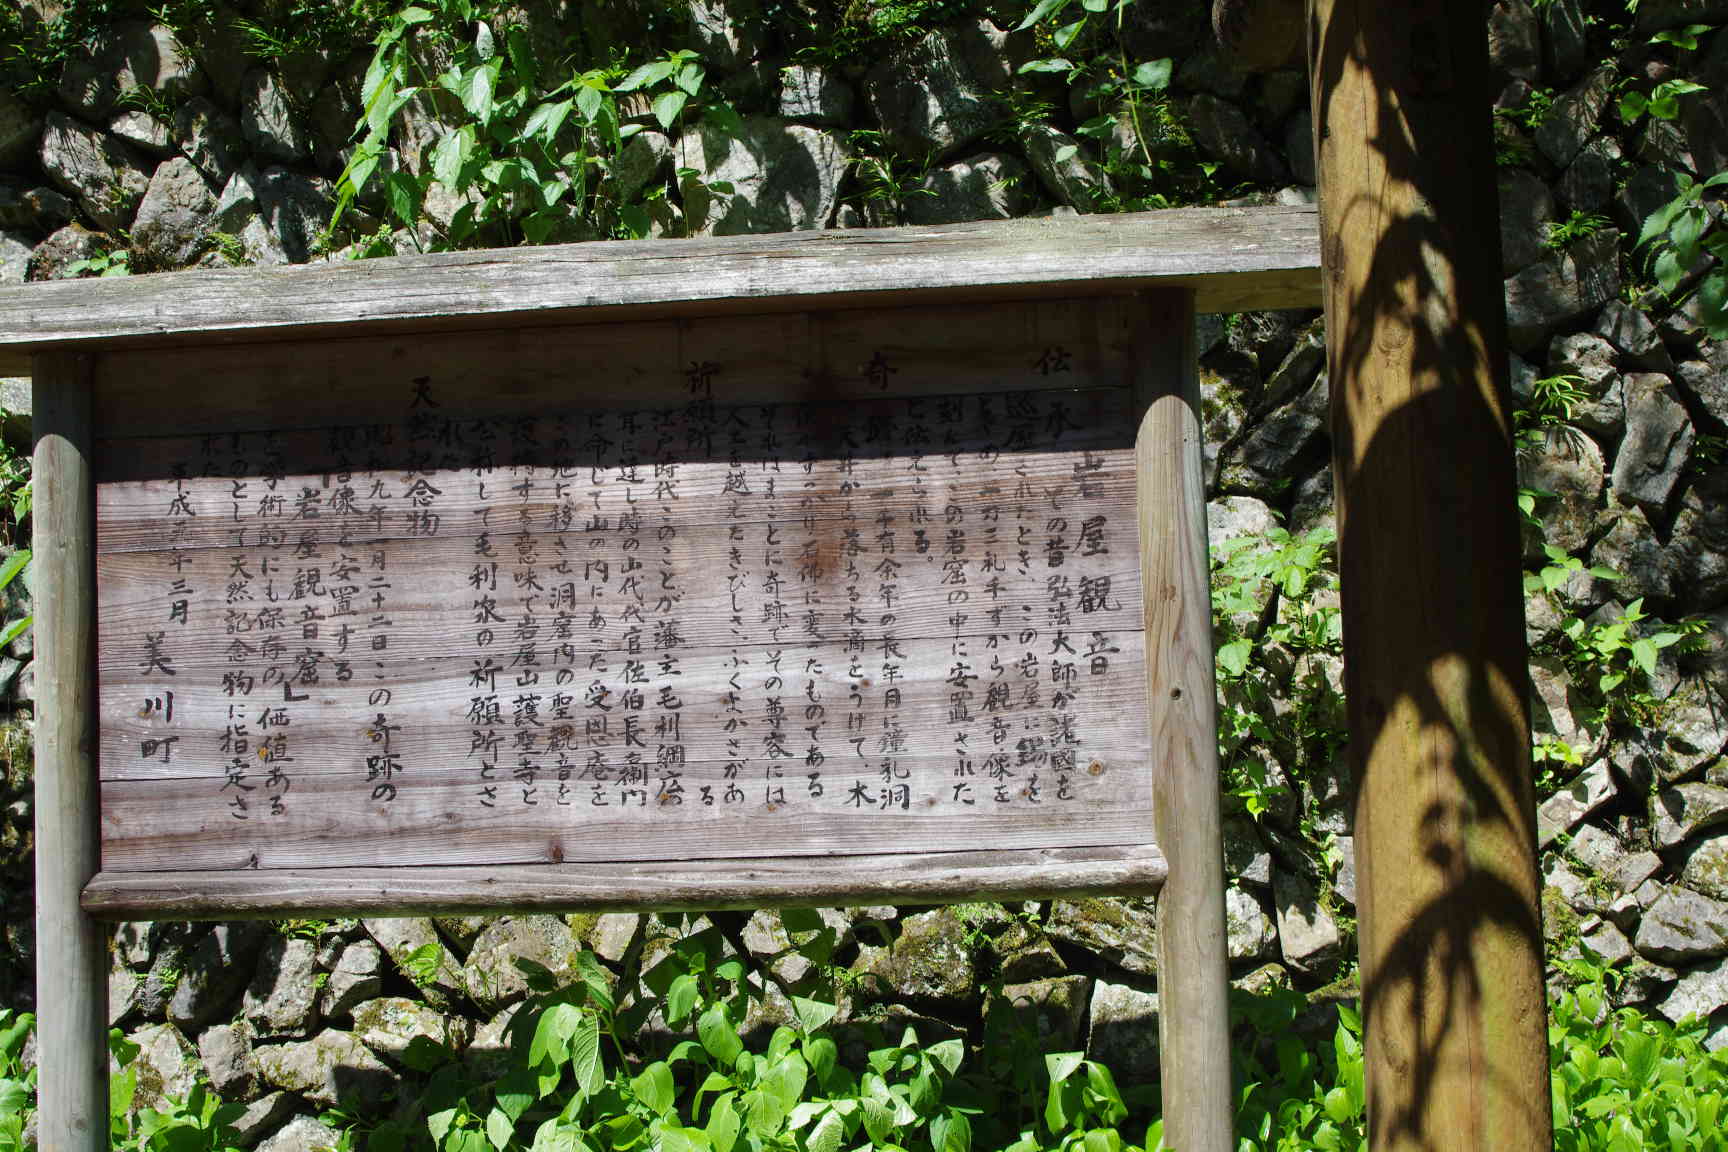 岩屋観音
伝承
その昔弘法大師が諸國を
巡歴されたとき、この岩屋に錫を
とどめ一刀三礼手ずから観音像を
刻んでこの岩窟の中に安置された
と伝えられる。
奇跡
一千有余年の長年月に鐘乳洞
の天井から落ちる水滴をうけて、木
像がすっかり石佛に変ったものである
それはまことに奇跡でその尊容には
人工を越えたきびしさ、ふくよかさがあ
る
祈願所
江戸時代このことが藩主毛利綱広
耳に達し時の山代代官佐伯長衛門
に命じて山の内にあった受恩庵を
この地に移させ洞窟内の聖観音を
護持する意味で岩屋山護聖寺と
公称して毛利家の祈願所とさ
れた
天然記念物
九年一月二十二日この奇跡の
観音像を安置する
「岩屋観音窟」
を学術的にも保存の価値ある
ものとして天然記念物に指定さ
れた
平成元年三月
美川町